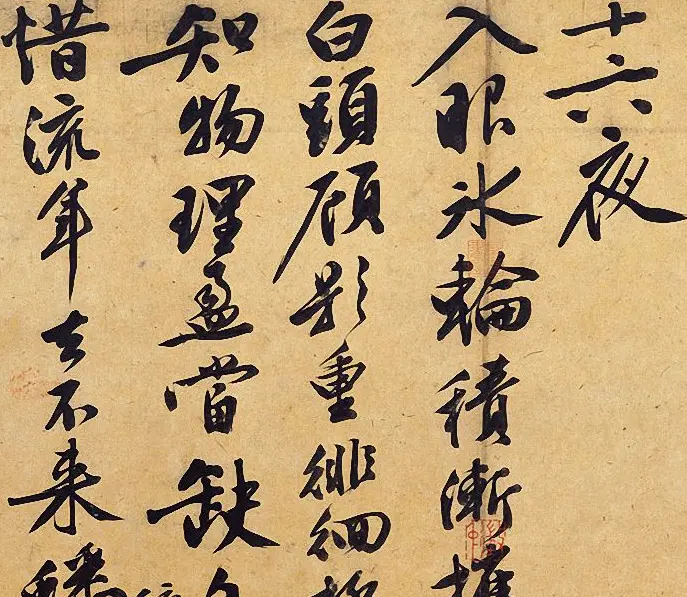 十六夜
入眼冰輪積漸
白頭顧影重徘徊
知物理盈當缺
惜流年去不来蟠